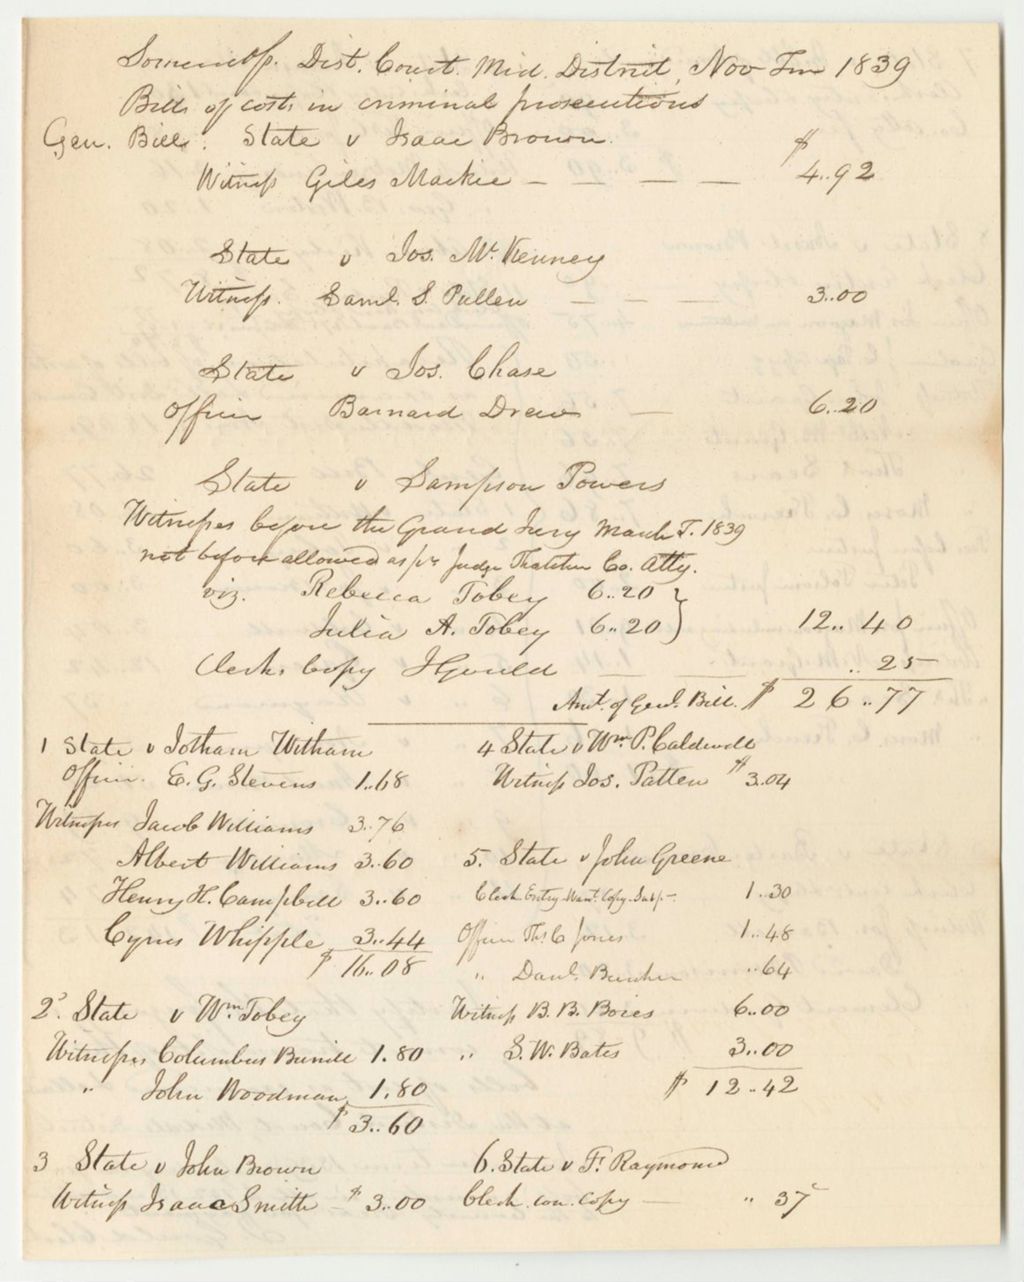 Somerset ss. Dist. Court. Mid. District, Nov Tm 1839
Bills of costs in criminal prosecutions
Gen. Bill. State v Isaac Brown. $
Witness Giles Mackie — — — — 4..92
State v Jos. McKenney
Witness. Saml. S. Pullen — — — 3..00
State v Jos. Chase
Officer Barnard Drew — 6..20
State v Sampson Powers
Witnesses before the Grand Jury March T. 1839
not before allowed as pr Judge Thatcher Co. Atty.
viz. Rebecca Tobey 6..20 }
Julia A. Tobey 6..20 } 12..40
Clerks Copy J Gould — — — .. 25
Amt. of Genl. Bill. $ 26..77
1 State v Jotham Witham
Officer. E. G. Stevens 1..68
Witnesses Jacob Williams 3..76
Albert Williams 3..60
Henry H. Campbell 3..60
Cyrus Whipple 3..44
$ 16..08
2. State v Wm. Tobey
Witnesses Columbus 1.80
" John Woodman 1.80
$ 3..60
3 State v John Brown
Witness Isaac Smith — $ 3..00
4 State v Wm. P. Caldwell
Witness Jos. Patten $ 3..04
5. State v John Greene
Clerk Entry Warrt. Copy. Subp — 1..30
Officer Ths. C Jones 1..48
" Danl. Bunker ..64
Witness B. B. Boies 6..00
" S. W. Bates 3..00
$ 12..42
6. State v Fs. Raymond
Clerk con. Copy — " 37